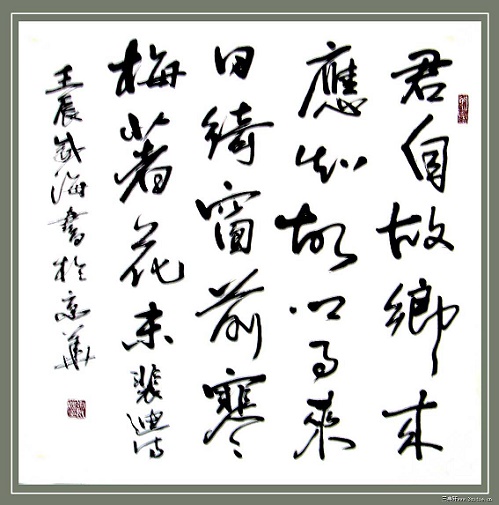 君自故鄉来
應知故鄉事來
日綺窗前寒
梅著花未裴迪诗
壬辰武海書於京華